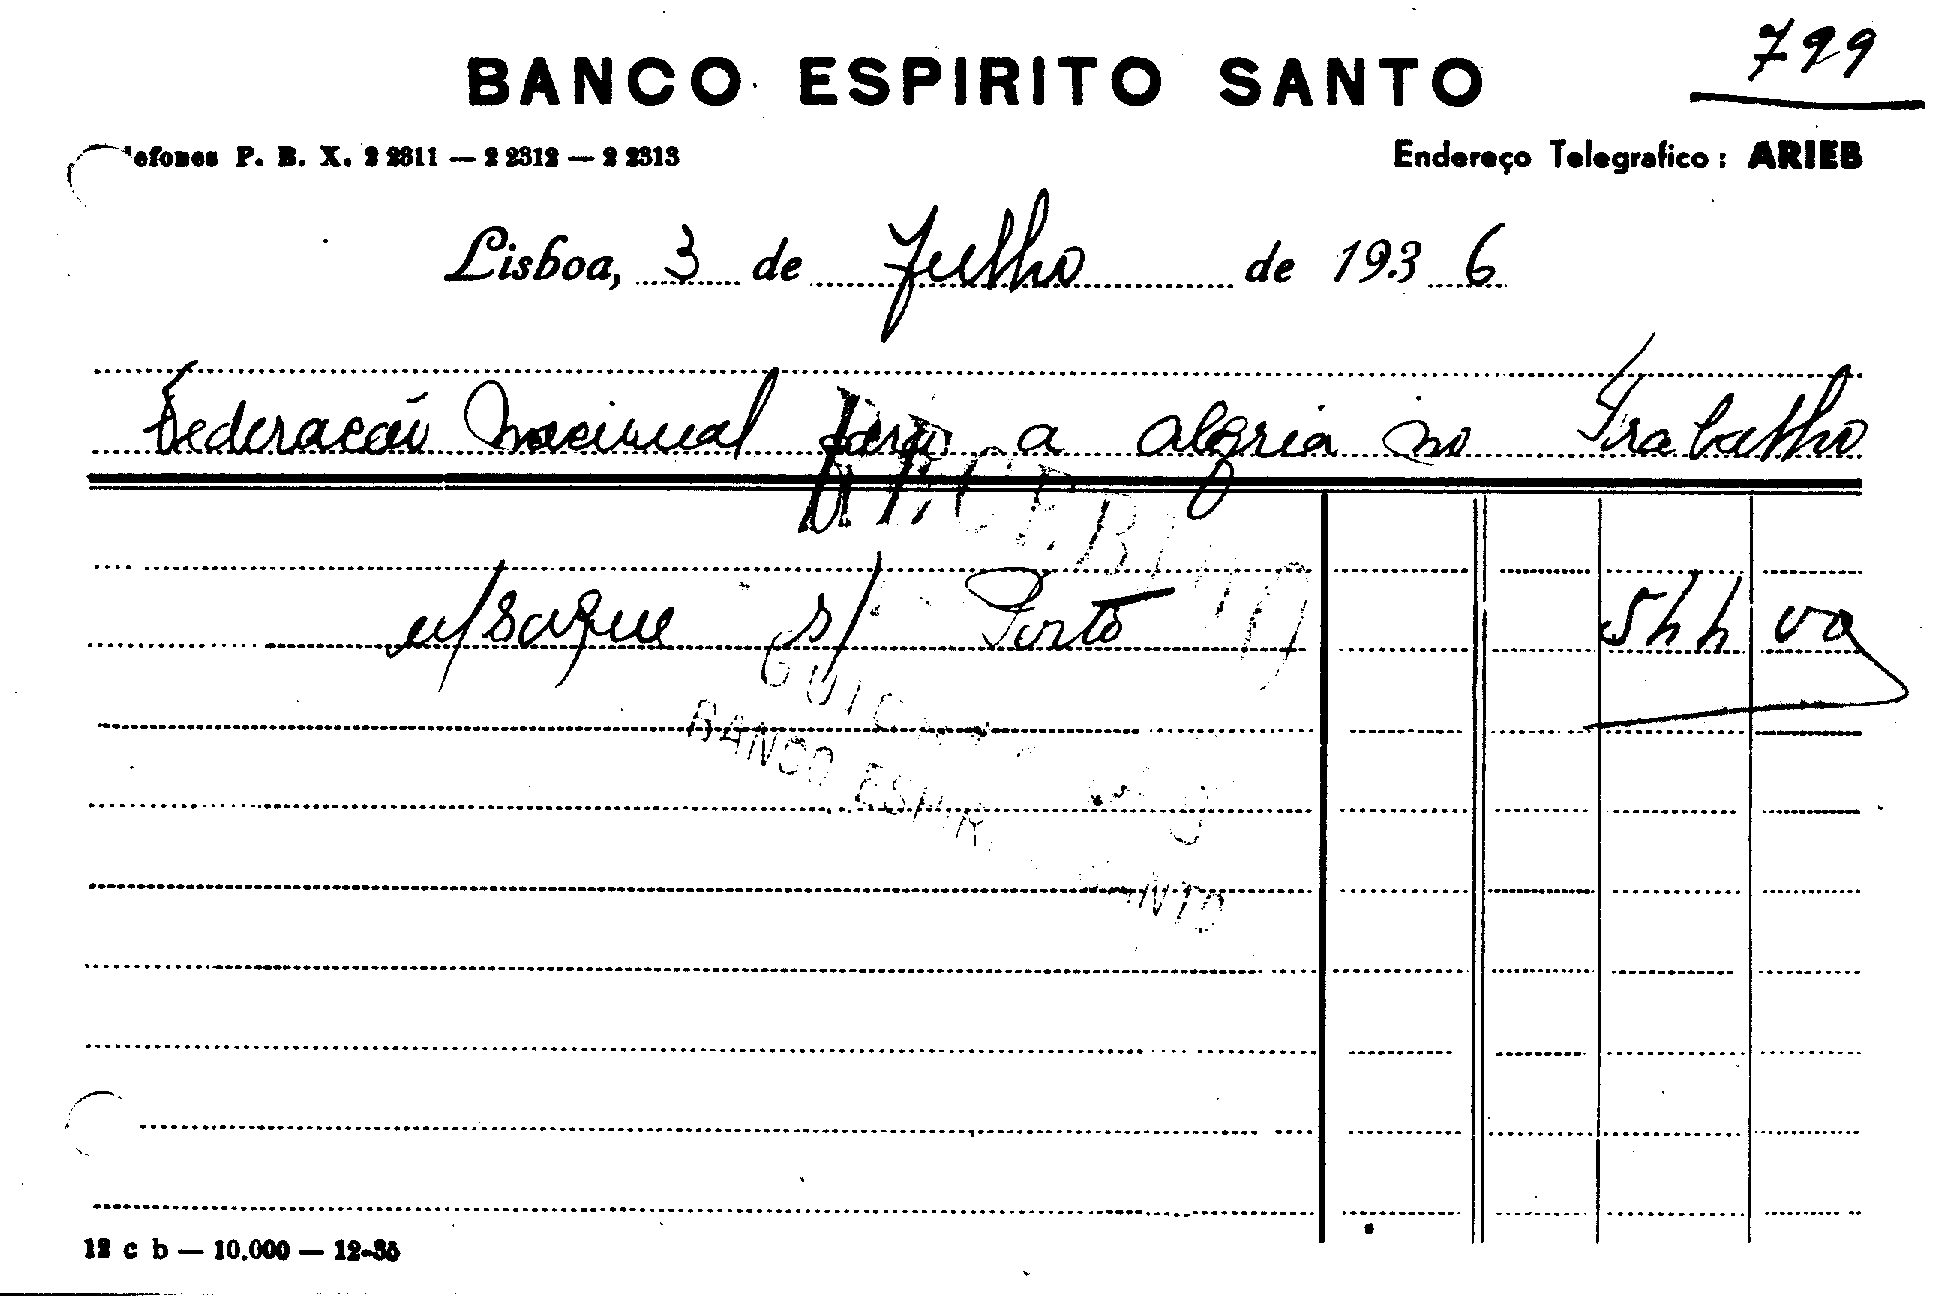 799
BANCO ESPIRITO SANTO
lefones P. B. X. 2 2311 — 2 2312 — 2 2313 Endereço Telegrafico: ARIEB
Lisboa, 3 de Julho de 1936
Federação Nacional para a Alegria no Trabalho
RECEBIDO
n/saque s/ Porto 544 00
BANCO ESPIRITO SANTO
12 c b — 10.000 — 12-35